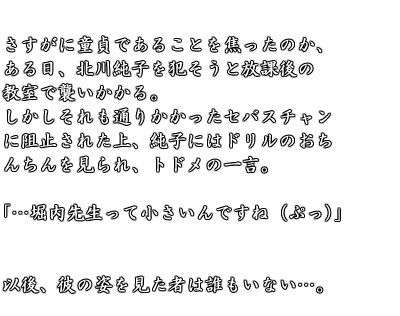 さすがに童貞であることを焦ったのか、
ある日、北川純子を犯そうと放課後の
教室で襲いかかる。
しかしそれも通りかかったセバスチャン
に阻止された上、純子にはドリルのおち
んちんを見られ、トドメの一言。
「…堀内先生って小さいんですね（ぷっ）」
以後、彼の姿を見た者は誰もいない…。